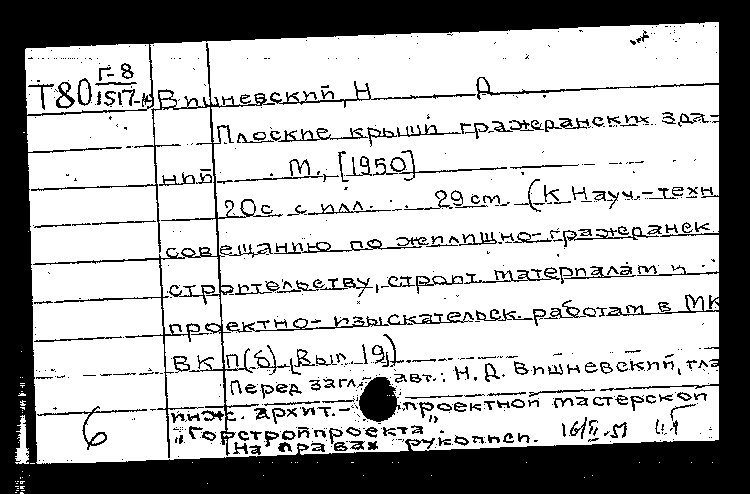 Т80 Г-8
1517-19
Вишневский, Н Д
Плоские крыши гражданских зда-
ний . М., [1950]
20с. с илл. 29cm. (К Науч.-техн
совещанию по жилищно-гражданск
строительству, строит. материалам и
проектно-изыскательск. работам в МК
ВКП(б). Вып. 19)
Перед загл. авт.: Н. Д. Вишневский, гла
инж. архит.-проектной мастерской
"Горстройпроекта".
На правах рукописи. 16/II-51
6